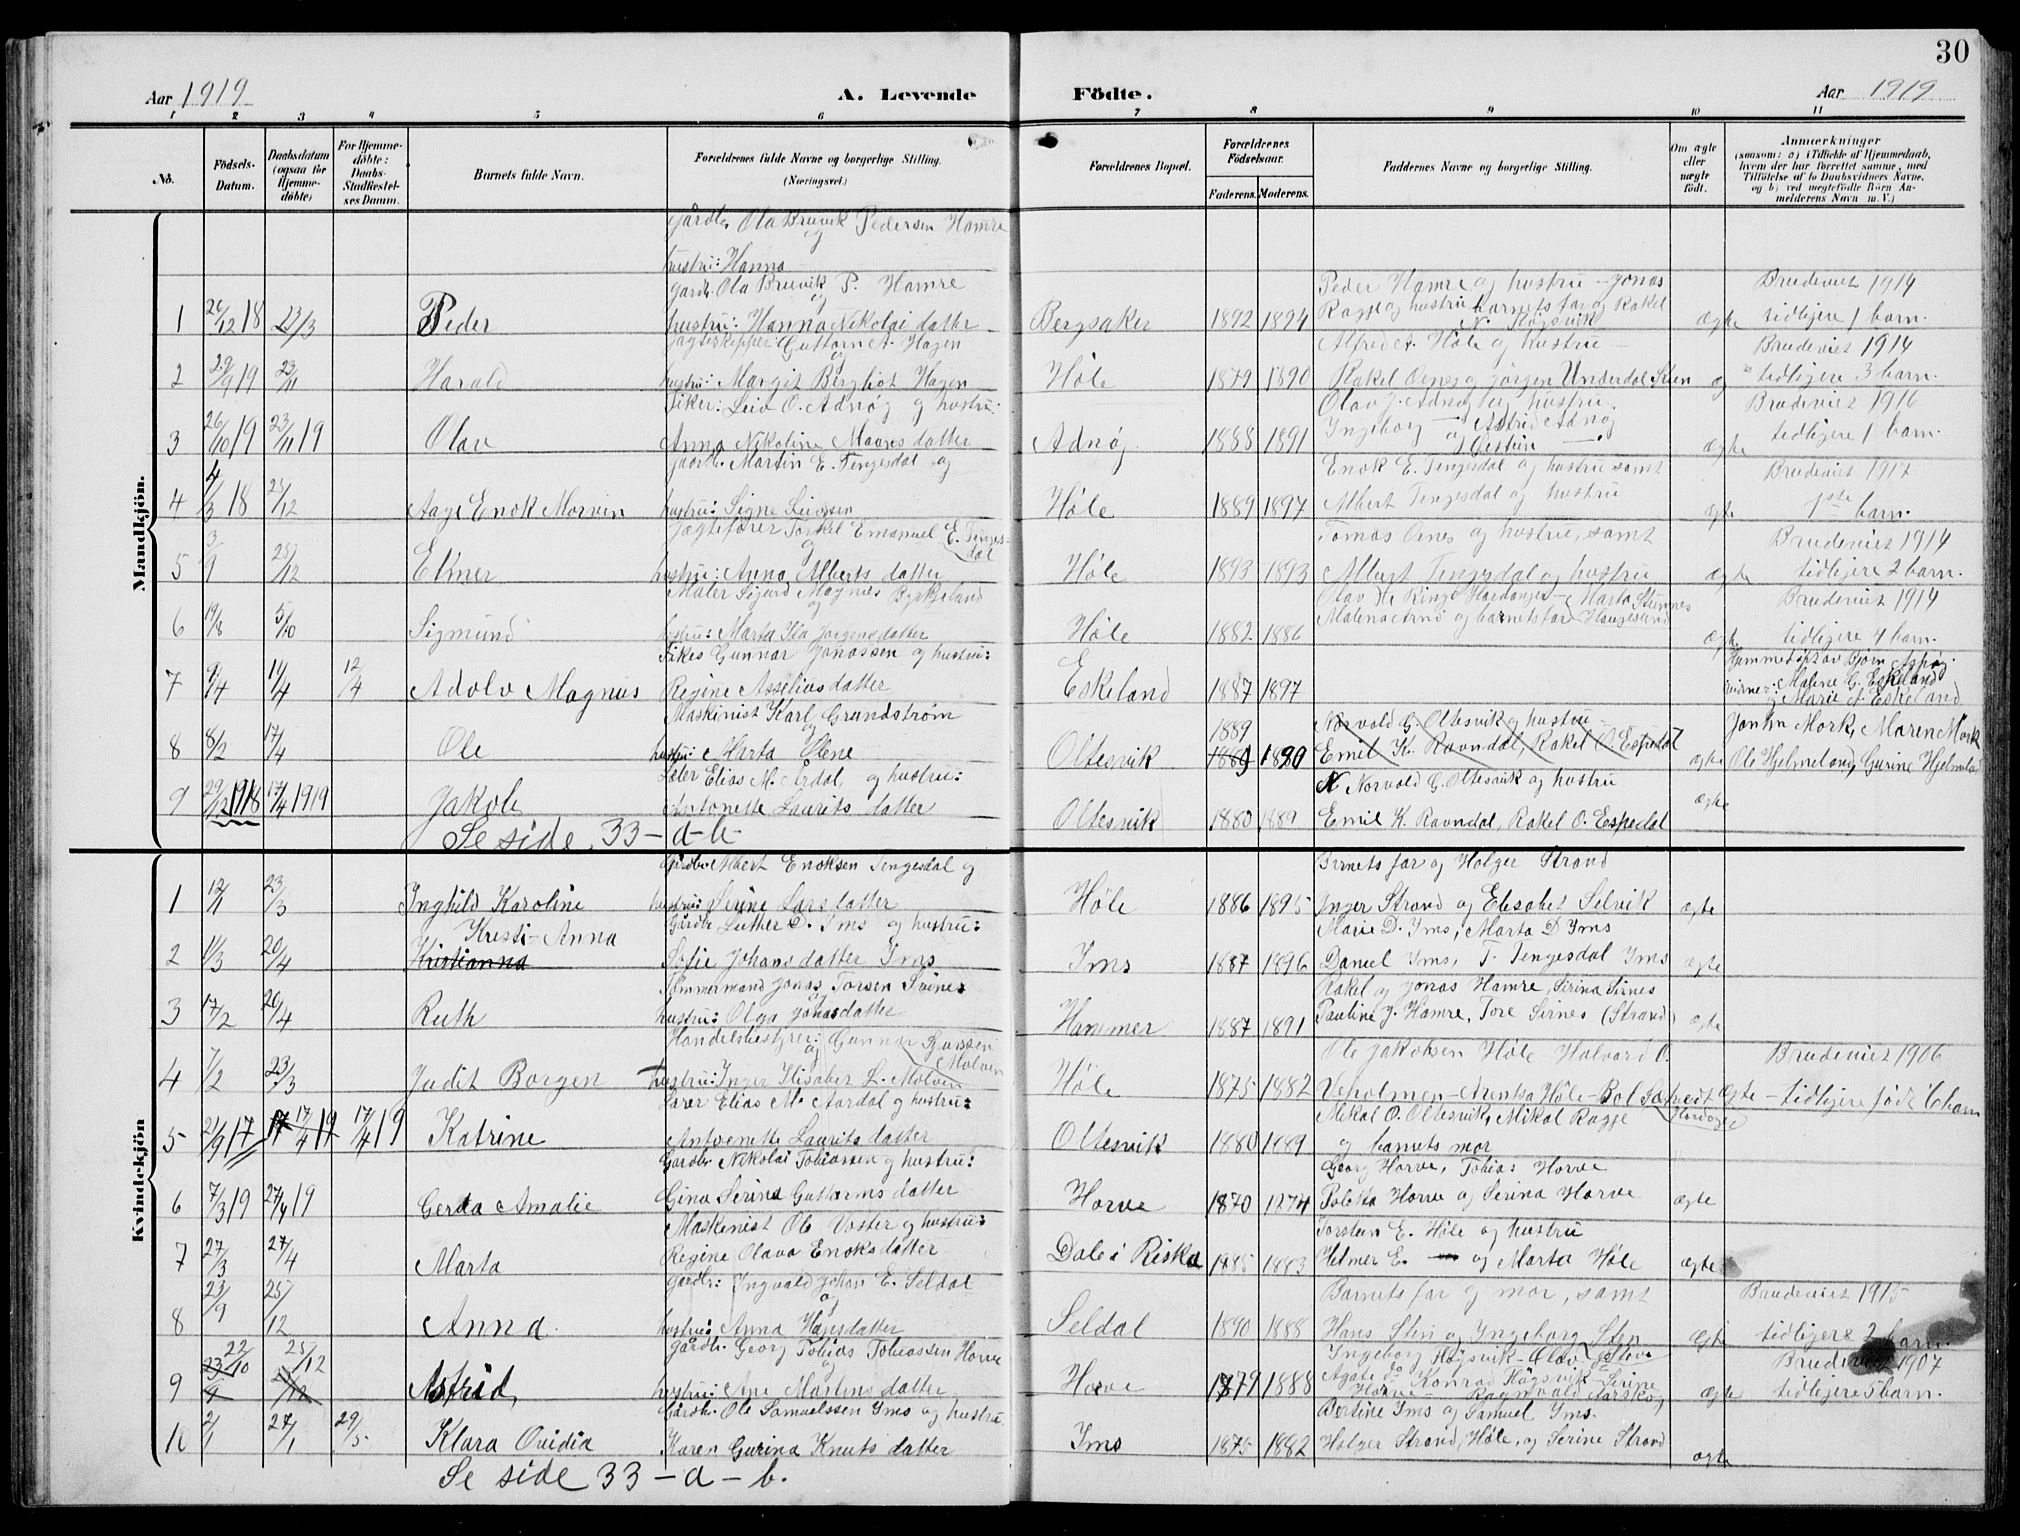 30
Aar 1919
A. Levende
Födte.
Aar 1919
1 2 3 4 5 6 7 8 9 10 11
No.
Födsels-Datum.
Daabsdatum (ogsaa for Hjemme-döbte)
For Hjemme-döbte: Daabs-Stadfæstel-ses Datum.
Barnets fulde Navn.
Forældrenes fulde Navne og borgerlige Stilling. (Næringsvei.)
Forældrenes Bopæl.
Forældrenes Födselsaar.
Faderens. Moderens.
Faddernes Navne og borgerlige Stilling.
Om ægte eller uægte født.
Anmærkninger
(saasom: a) i Tilfælde af Hjemmedaab, hvem der har forrettet samme, med Tilföielse af to Daabsvidners Navne. og b) ved uægtefödte Börn Anmelderens Navn m. V.)
Mandkjön.
Gårdb. Ola Bruvik Pedersen Hamre
og
hustru: Hanna
Gardb. Ola Bruvik P. Hamre
og
1 26/12 18 23/3 Peder hustru: Hanna Nikolai datter Bergsaker 1892 1894 ægte tidligere 1 barn.
Peder Hamre og hustru - Jonas
Ragge og hustru barnets far og Rakel
N. Høgsvik
Brudeviet 1914
Jagteskipper Guttorm A. Hagen
og
2 29/9 19 23/11 Harald hustru: Margit Bergliot Hagen Høle 1879 1890 Rakel Oenes og Jørgen Underdal Steen tidligere 3 barn.
Alfred A. Høle og hustru -
Brudeviet 1914
Fiker: Leiv O. Adnøj og hustru:
3 26/10 19 23/11 19 Olav Anna Nikoline Maans datter Adnøj 1888 1891 ægte tidligere 1 barn.
Olav J. Adnøj og hustru
Ingeborg - Astrid Adnøj
og Oestein
Brudeviet 1916
Gårdb. Martin E. Tengesdal og
4 4/3 18 25/12 Aage Enok Morvin hustru: Signe Høle 1889 1897 Albert Tengesdal og hustru ægte 1ste barn.
Enok E. Tengesdal og hustru samt
Brudeviet 1917
Jagtefører Torkel Emanuel E. Tengesdal
og
5 3/9 25/12 Elmer hustru: Anna Alberts datter Høle 1893 1893 Albert Tengesdal og hustru ægte tidligere 2 barn.
Tomas Oenes og hustru, samt
Brudeviet 1914
Maler Sigurd Magnus Bjrkjeland
og
6 19/8 5/10 Sigmund hustru: Marta Ita Jorgens datter Høle 1882 1886 ægte tidligere 4 barn.
Brudeviet 1914
Fikes Gunnar Jonassen og hustru:
7 9/4 14/4 12/4 Adolv Magnus Regine Asselius datter Eskeland 1887 1897
Hjemmedøpt av Bjørn Aspøy
vidner: Malene G. Eskeland
og Marie A. Eskeland
Maskinist Karl Grundstrøm
8 8/2 17/4 Ole hustru: Marta Olene Oltesvik 1889 1889 1890 Emil K. Ravndal, Rakel O. Espedal ægte
Norvald G. Oltesvik og hustru -
Jonkn Mork, Maren Mork
Ole Hjelmeland, Gurine Hjelmeland
Elias M. Årdal, og hustru:
9 29/12 1918 17/4 1919 Jakob Antonette Laurits datter Oltesvik 1880 1889 Emil K. Ravndal, Rakel O. Espedal ægte
N Norvald G. Oltesvik og hustru
Se side 33-a-b
Kvindekjön
Gårdbr Albert Enoksen Tengesdal og
1 12/1 23/3 Inghild Karoline hustru: Serine Lars datter Høle 1886 1895 Inger Strand og Elisabet Selvik ægte
Barnets far og Holger Strand
Gårdb Luther D. Ims og hustru:
Kresti-Anna
2 11/3 20/4 Kristianna Sofie Johans datter Ims Ims 1887 1896 Daniel Ims, T. Tengesdal Ims ægte
Marie D. Ims, Marta D Ims
Tømmermand Jonas Torsen Sirnes
3 17/2 20/4 Ruth hustru: Olga Jonas datter Hammer 1887 1891 Pauline J. Hamre, Tore Sirnes (Strand) ægte
Rakel og Jonas Hamre, Serina Sirnes
Handelsbestyrer: Gunnar Sjursen
og Molven
4 7/2 23/3 Judit Borgen hustru: Inger Elisabet L. Molven Høle 1875 1882 Veholmen - Arentsa Høle - Bol ægte - tidligere født 6 barn
Ole Jakobsen Høle - Halvard O.
Brudeviet 1906
Elias M. Aardal og hustru:
5 21/9 17 17/4 19 17/4 19 Katrine Antonette Laurits datter Oltesvik 1880 1889 og barnets mor
Mikal O. Oltesvik, Mikal Ragge
Gardbr Nikolai Tobiassen og hustru:
6 7/3 19 27/4 19 Gerda Amalie Gina Serina Guttorms datter Horve 1870 1874 Horve og Serina Horve ægte
Georg Horve, Tobias Horve
Maskinist Ole Voster og hustru:
7 27/3 27/4 Marta Regine Olava Enoks datter Dale i Riska 1885 1883 Helmer E. og Marta Høle ægte
Torstein E. Høle og hustru
Gårdb: Ingvald Johan E. Seldal
og
8 23/9 25/12 Anna. hustru: Anna Hans datter Seldal 1890 1888 Hans Sten og Ingeborg Sten ægte tidligere 2 barn.
Barnets far og mor, samt
Brudeviet 1915
Gårdb. Georg Tobias Tobiassen Horve
og
9 22/10 25/12 Astrid hustru: Ane Martens datter Horve 1879 1888 ægte tidligere 5 barn.
Ingeborg Høgsvik - Olav
Brudeviet 1907
Gårdb. Ole Samuelssen Ims og hustru
10 2/1 27/1 29/5 Klara Ovidia Karen Gurina Knuts datter Ims 1875 1882 Holger Strand, Høle, og Serine Strand ægte
Bertine Ims og Samuel Ims.
Se side 33-a-b.